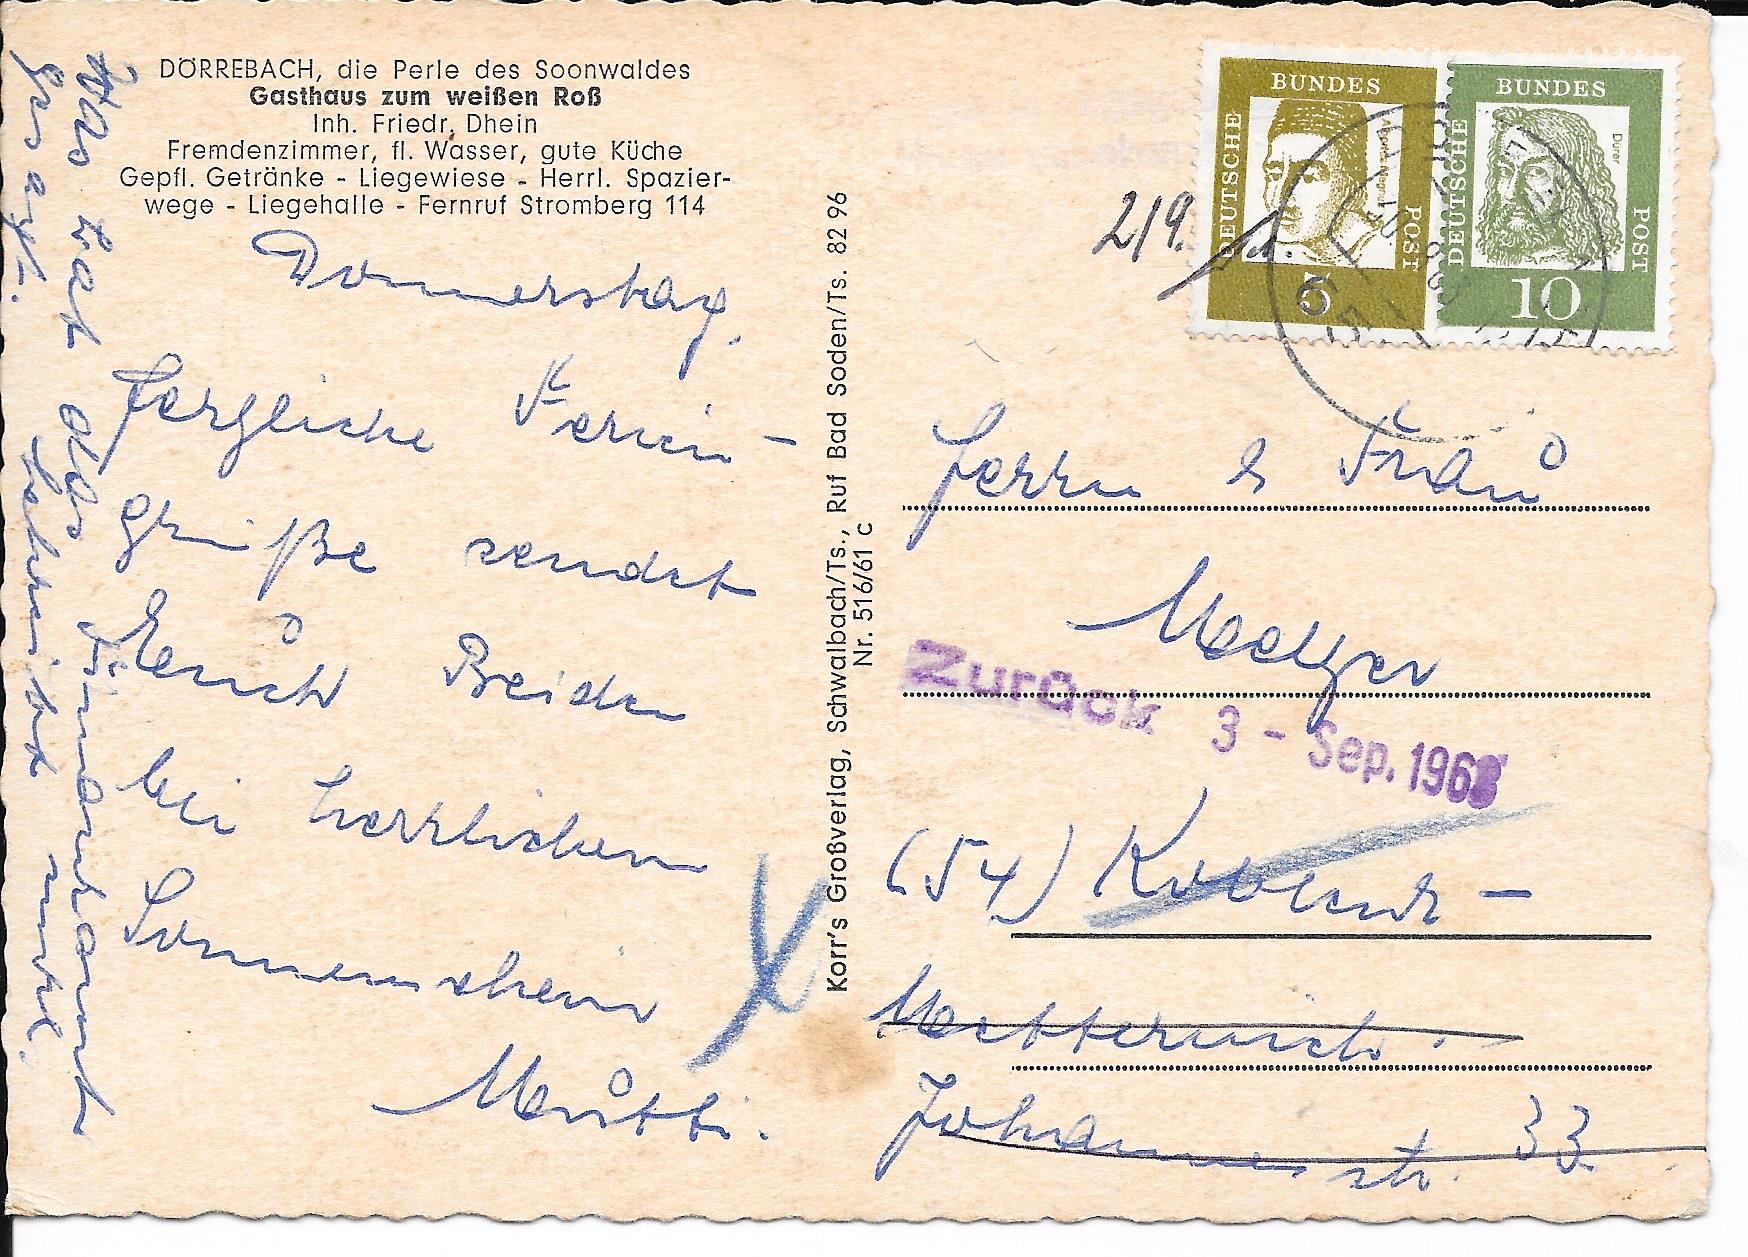 DÖRREBACH, die Perle des Soonwaldes
Gasthaus zum weißen Roß
Inh. Friedr. Dhein
Fremdenzimmer, fl. Wasser, gute Küche
Gepfl. Getränke - Liegewiese - Herrl. Spazier-
wege - Liegehalle - Fernruf Stromberg 114
Donnerstag.
Herzliche Ferien-
grüße sendet
Euch Beiden
bei herrlichem
Sonnenschein
Mutti.
Was hat das
gesagt.
Korr's Großverlag, Schwalbach/Ts., Ruf Bad Soden/Ts. 82 96
Nr. 516/61 c
DEUTSCHE BUNDES POST
5
DEUTSCHE BUNDES POST
Dürer
10
2/9.
Herrn & Frau
Melzer
Zurück 3 - Sep. 1963
(54) Koblenz -
Metternich.
Johannesstr. 33